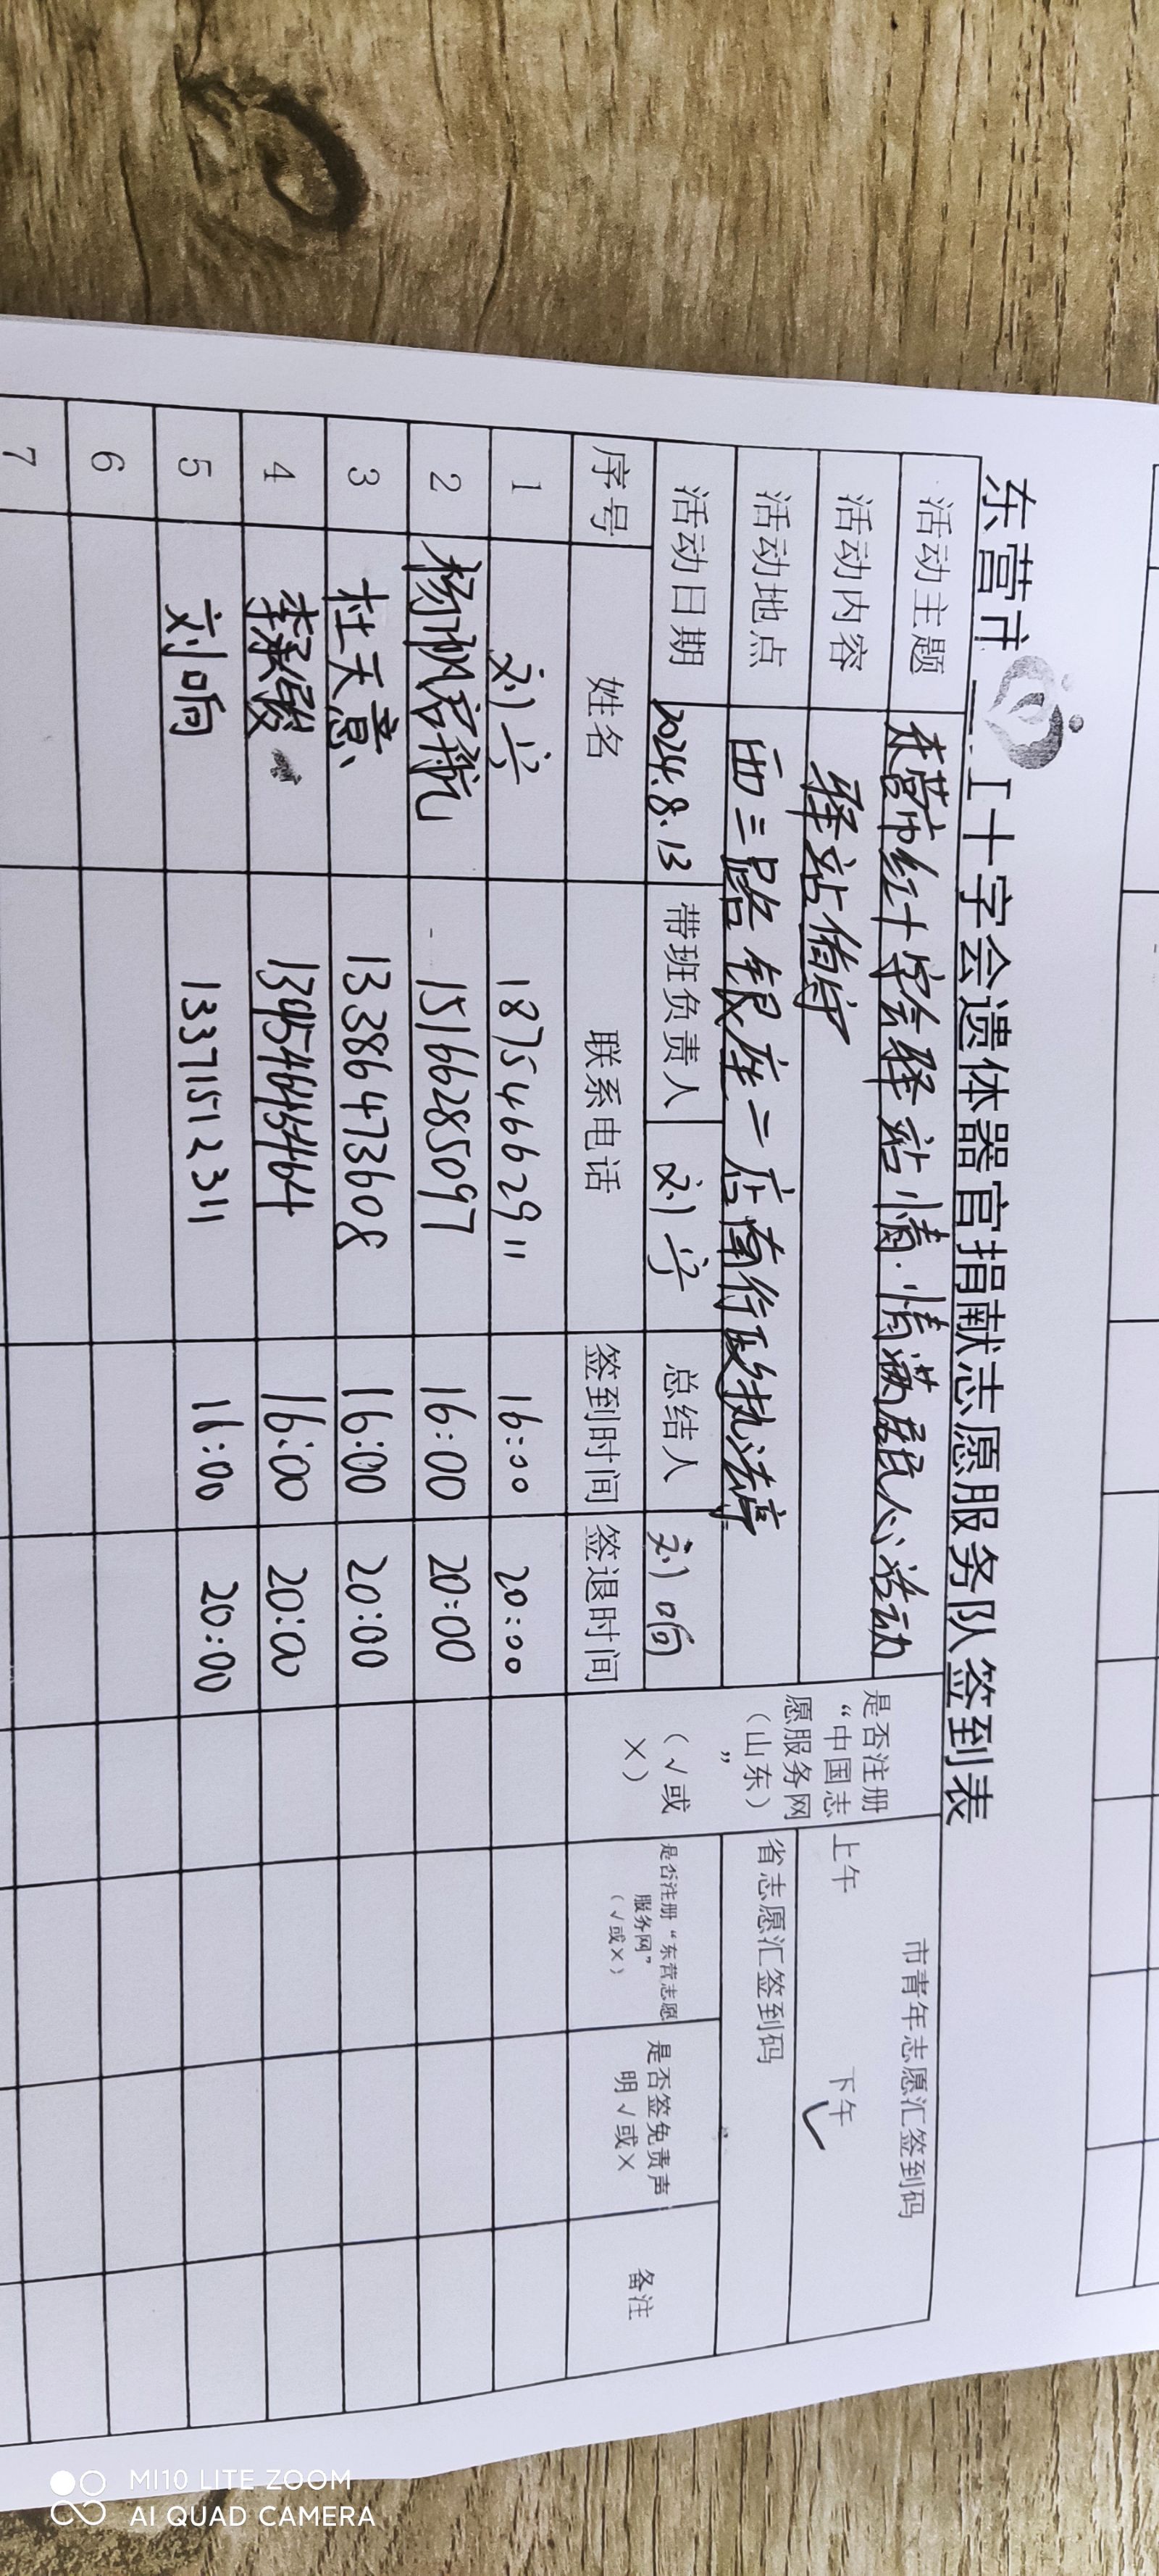 东营市 工十字会遗体器官捐献志愿服务队签到表
活动主题 东营市红十字会驿站情·情满居民心活动
活动内容 驿站值守
活动地点 西三路银座二店南行政执法亭
活动日期 2024.8.13 带班负责人 刘宁 总结人 刘响
是否注册“中国志愿服务网（山东）” （√或×）
市青年志愿汇签到码
上午 下午 ✓
省志愿汇签到码
序号 姓名 联系电话 签到时间 签退时间 是否注册“东营志愿服务网”（√或×） 是否签免责声明√或× 备注
1 刘宁 18754662911 16:00 20:00
2 杨帆启航 15166285097 16:00 20:00
3 杜天意 13386473608 16:00 20:00
4 李承俊 13954645464 16:00 20:00
5 刘响 13371512311 16:00 20:00
6
7
MI10 LITE ZOOM
AI QUAD CAMERA